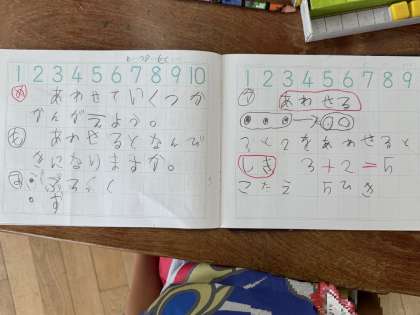 1 2 3 4 5 6 7 8 9 10
め あわせていくつか
かんがえよう。
も あわせるとなんび
きになりますか。
ま ぶろっく
す
1 2 3 4 5 6 7 8 9
あわせる
3と2をあわせると
しき 3+2=5
こたえ 5ひき